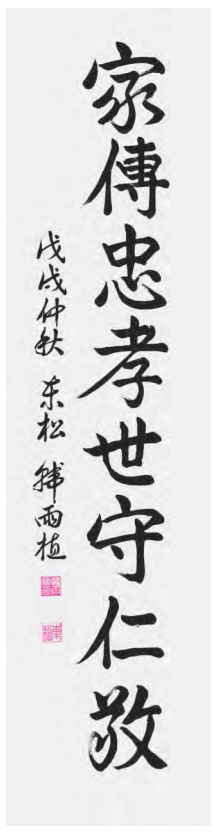 家傳忠孝世守仁敬
戊戌仲秋 东松 韩雨植